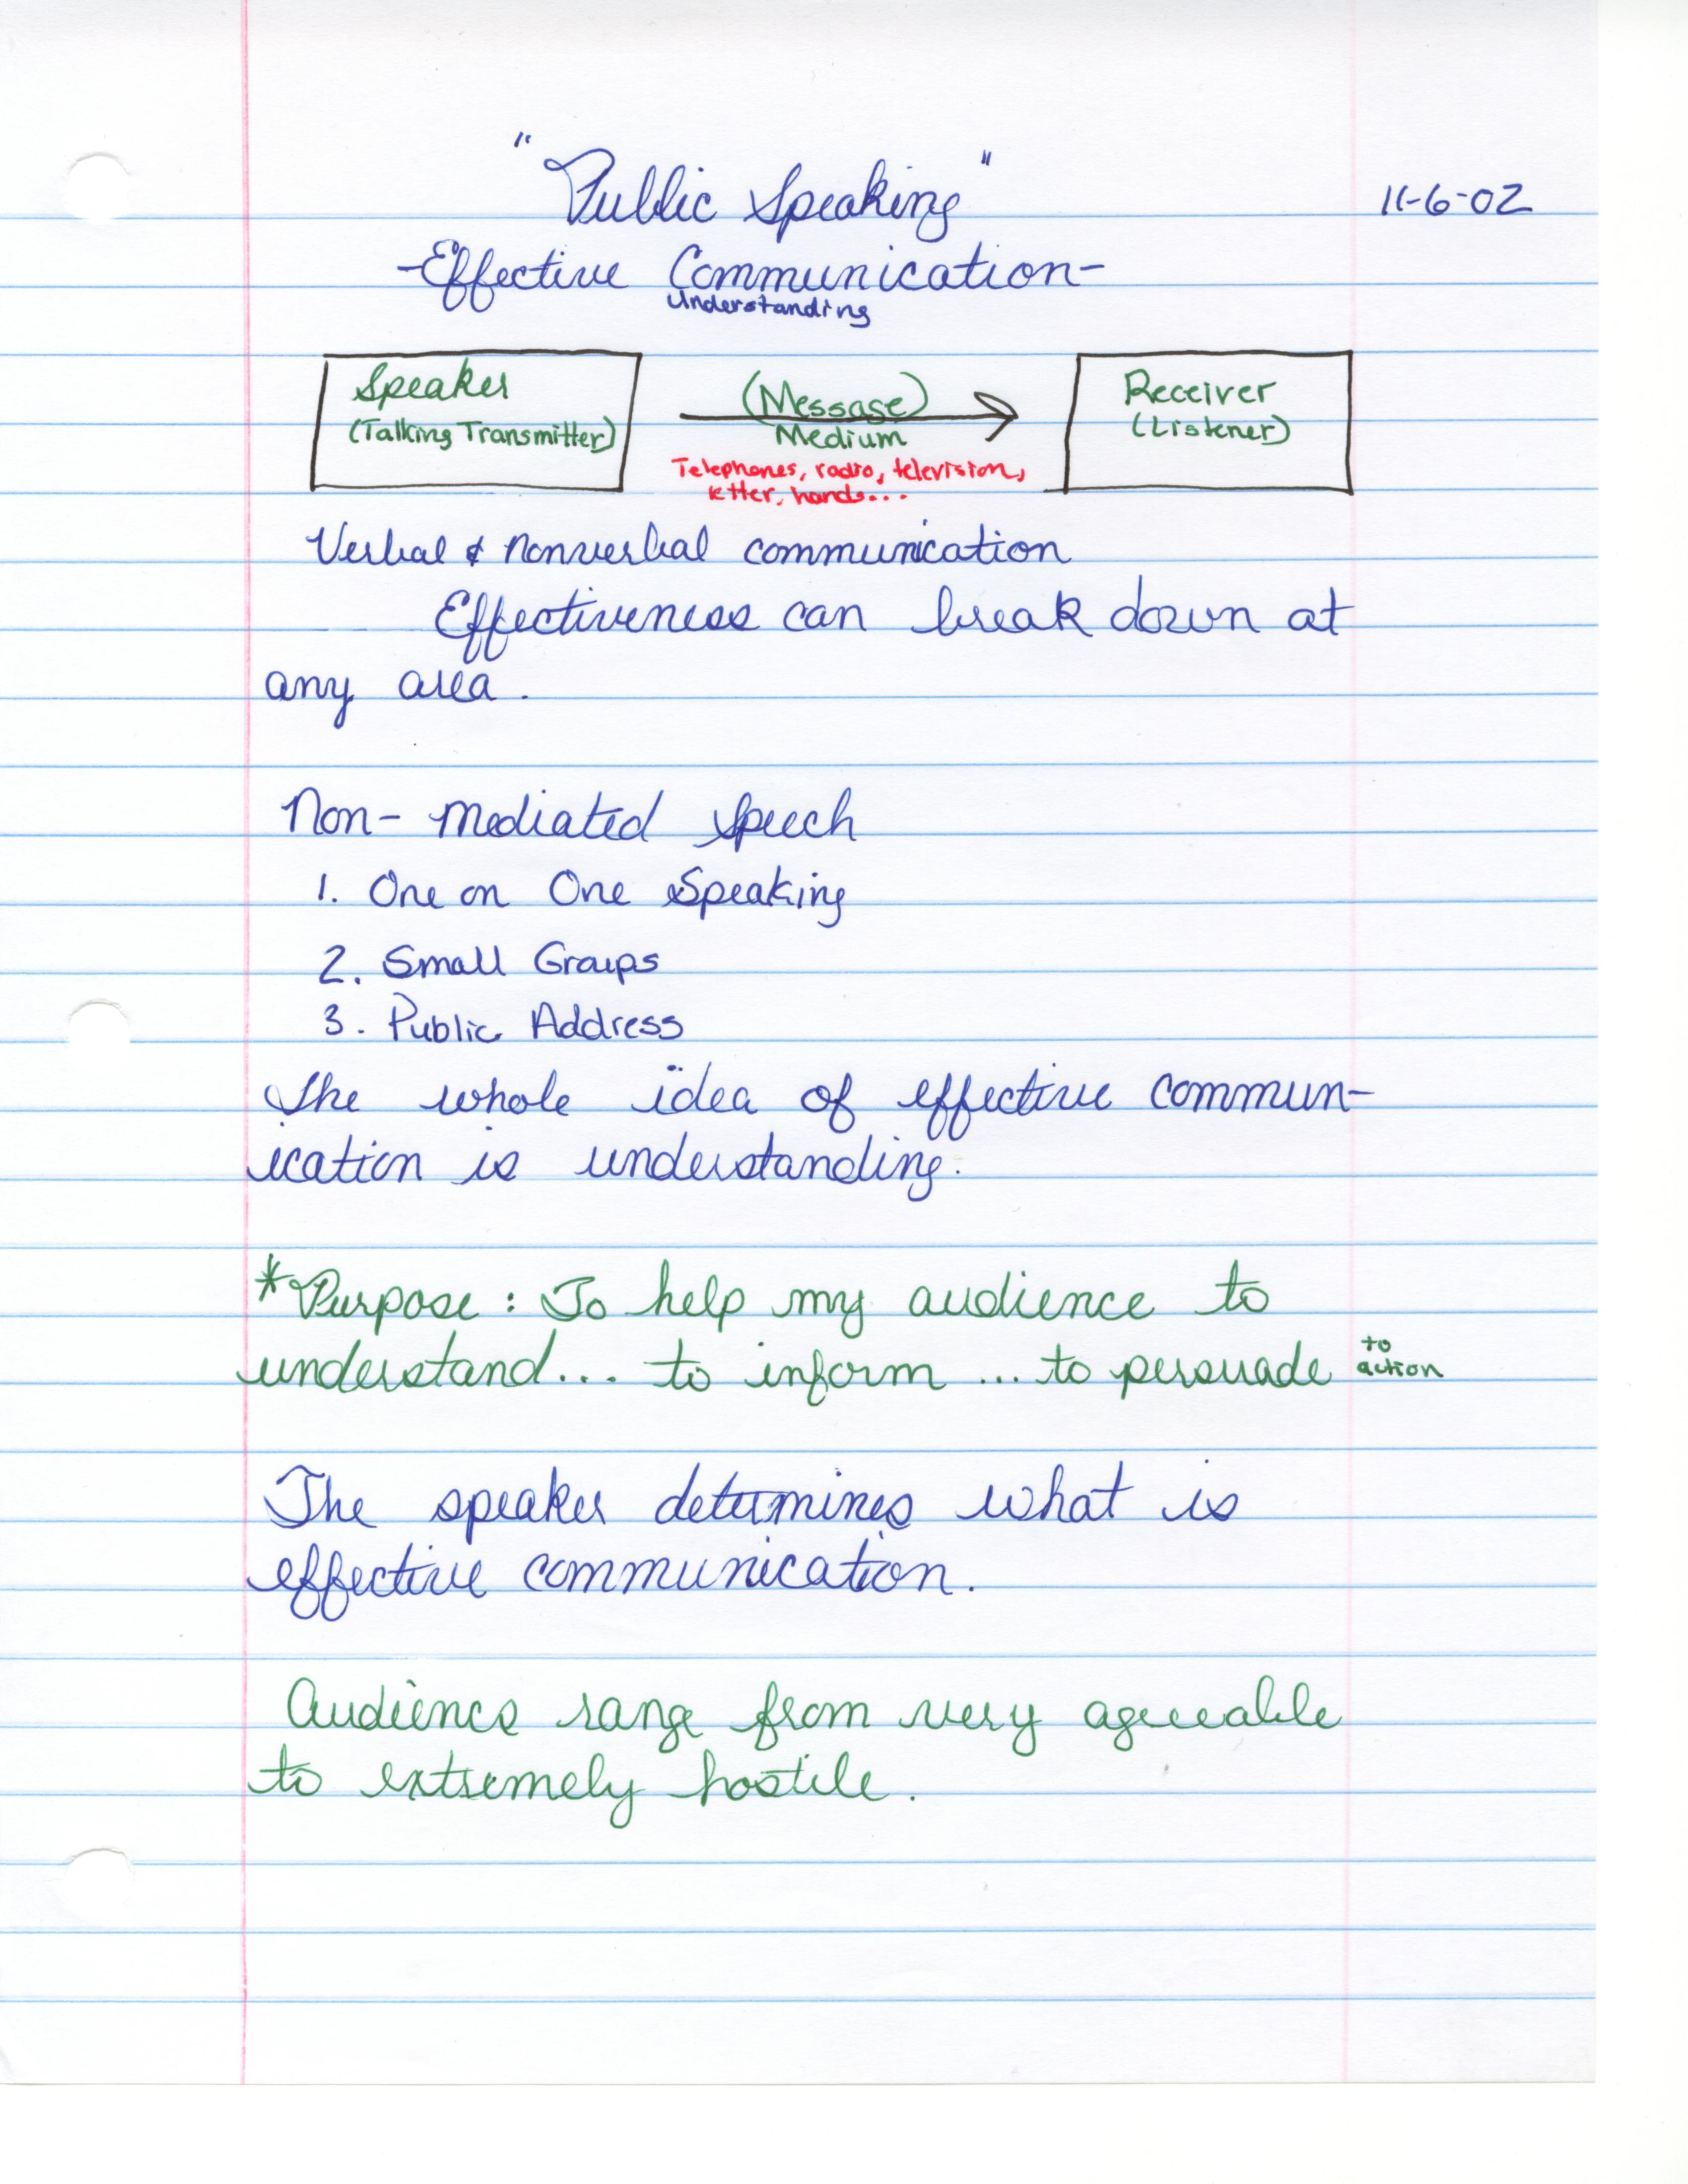 "Public Speaking"
11-6-02
-Effective Communication-
Understanding
Speaker
(Talking Transmitter)
(Message)
Medium
Telephones, radio, television,
letter, hands...
Receiver
(Listener)
Verbal & nonverbal communication
Effectiveness can break down at
any area.
Non-mediated speech
1. One on One Speaking
2. Small Groups
3. Public Address
The whole idea of effective commun-
ication is understanding.
*Purpose: To help my audience to
understand... to inform ... to persuade to action
The speaker determines what is
effective communication.
Audience range from very agreeable
to extremely hostile.